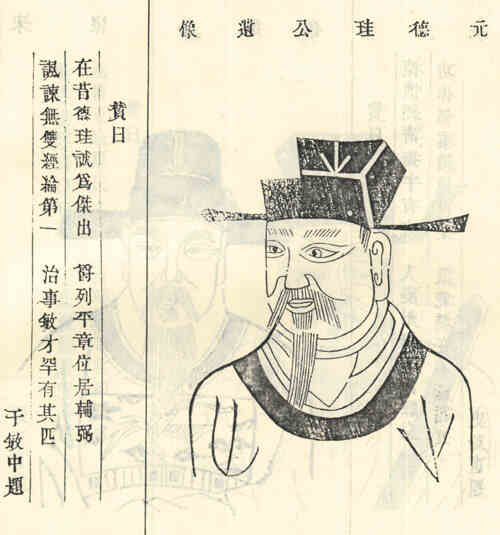 元德珪公遺像
賛曰
在昔德珪誠爲傑出 爵列平章位居輔弼
諷諫無雙經綸第一 治事敏才罕有其匹
于敏中題